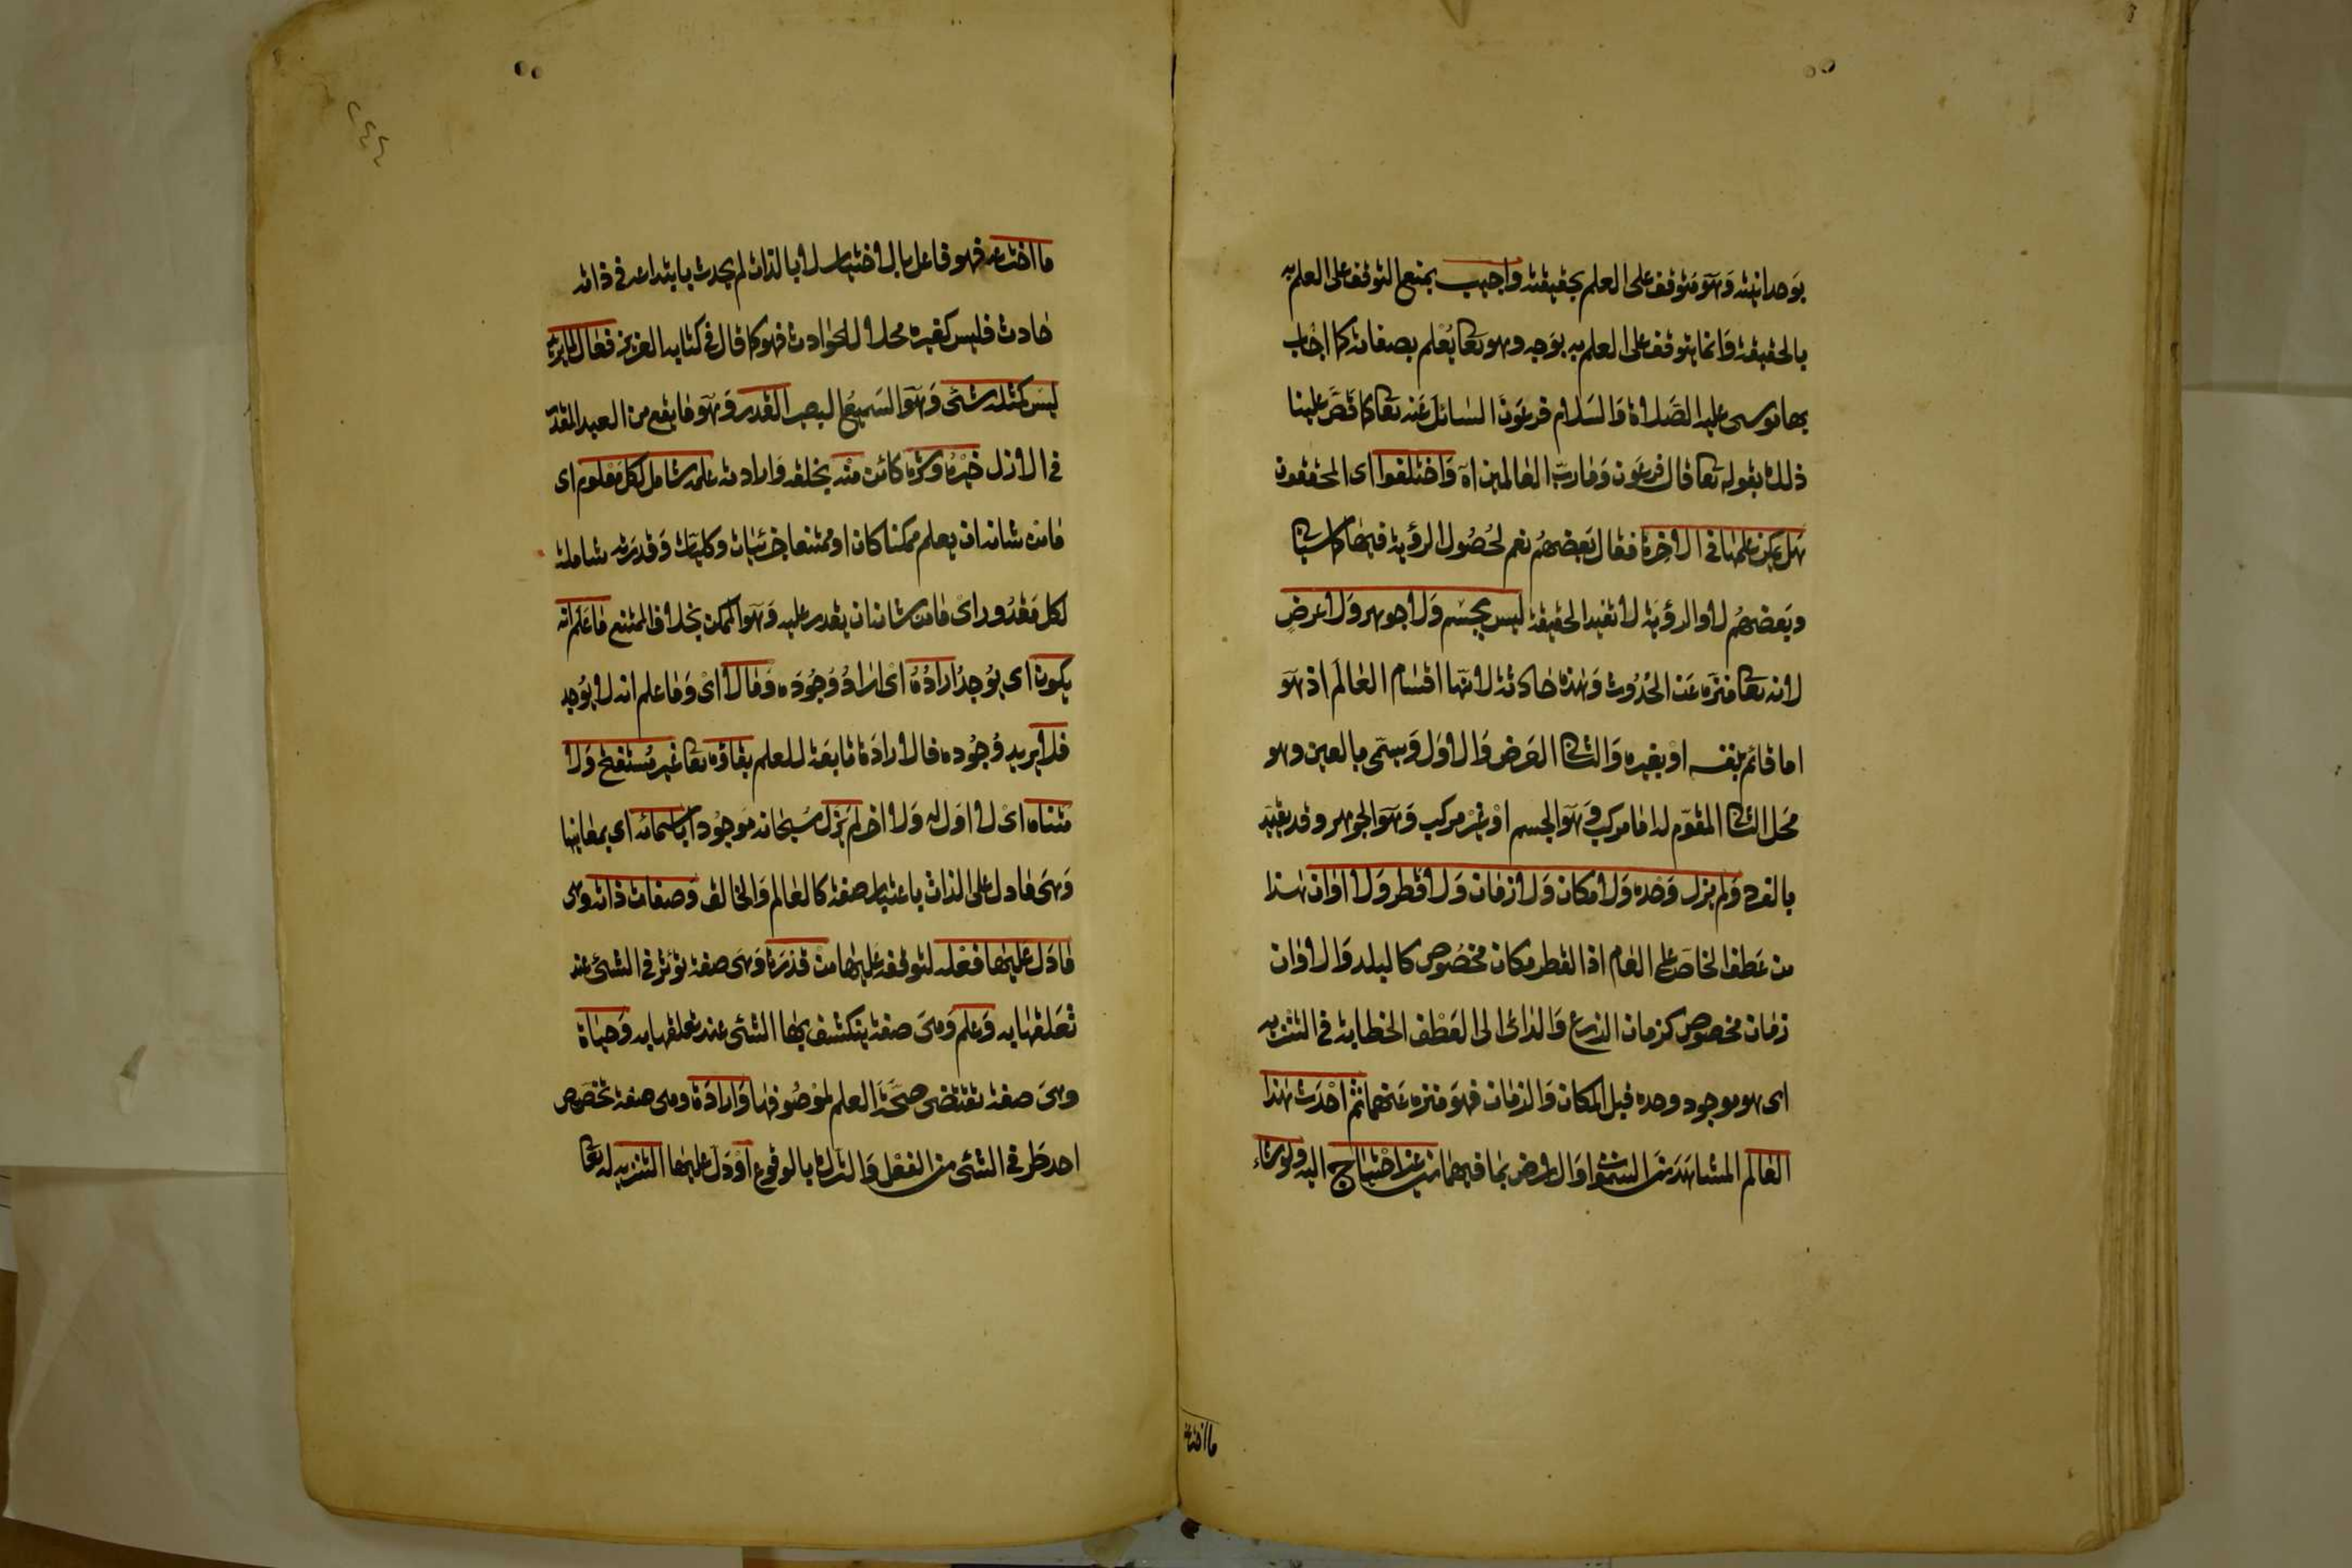 بوحدانيته وهو متوقف على العلم بحقيقته واجيب بمنع التوقف على العلم به
بالحقيقة وانما يتوقف على العلم به بوجه وهو تعا يعلم بصفاته كما اجاب
بها موسى عليه الصلاة والسلام فرعون السائل عنه تعا كما قص علينا
ذلك بقوله تعا قال فرعون وما رب العالمين اه واختلفوا اى المحققون
هل يمكن علمها فى الاخرة فقال بعضهم نعم لحصول الرؤية فيها كما سياتى
وبعضهم لا والرؤية لا تفيد الحقيقة ليس بجسم ولا جوهر ولا عرض
لانه تعا منزه عن الحدوث وهذه حادثة لانها اقسام العالم اذ هو
اما قائم بنفسه او بغيره والثانى العرض والاول ويسمى بالعين وهو
محل الثانى المقوم له اما مركب وهو الجسم او غير مركب وهو الجوهر وقد يقيد
بالفرد ولم يزل وحده ولا مكان ولا زمان ولا قطر ولا اوان هذا
من عطف الخاص على العام اذ القطر مكان مخصوص كالبلد والاوان
زمان مخصوص كزمان الزرع والداعى الى العطف الخطابة فى التنزيه
اى هو موجود وحده قبل المكان والزمان فهو منزه عنهما ثم احدث هذا
العالم المشاهد من السموات والارض بما فيهما من غير احتياج اليه ولو شاء
ما اخترعه
ما اخترعه فهو فاعل بالاختيار لا بالذات لم يحدث بابتداعه فى ذاته
حادث فليس كغيره محلا للحوادث فهو كما قال فى كتابه العزيز فعال لما يريد
ليس كمثله شئ وهو السميع البصير القدر وهو ما يقع من العبد المقدر
فى الازل خيره وشره كائن منه بخلقه وارادته علمه شامل لكل معلوم اى
ما من شانه ان يعلم ممكنا كان او ممتنعا جزئيات وكليات وقدرته شاملة
لكل مقدور اى ما من شانه ان يقدر عليه وهو الممكن بخلاف الممتنع ما علم انه
يكون اى يوجد اراده اى اراد وجوده وما لا اى وما علم انه لا يوجد
فلا يريد وجوده فالارادة تابعة للعلم بقاؤه تعا غير مستفتح ولا
متناه اى لا اول له ولا اخر لم يزل سبحانه موجودا باسمائه اى بمعانيها
وهى ما دل على الذات باعتبار صفة كالعالم والخالق وصفات ذاته وهى
ما دل عليها فعله لتوقفه عليها من قدرة وهى صفة تؤثر فى الشئ عند
تعلقها به وعلم وهى صفة ينكشف بها الشئ عند تعلقها به وحياة
وهى صفة تقتضى صحة العلم لموصوفها وارادة وهى صفة تخصص
احد طرفى الشئ من الفعل والترك بالوقوع او دل عليها التنزيه له تعا
٢٤٤